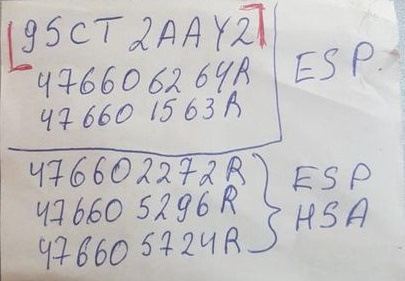 95CT 2AAY2
47660 6264R
47660 1563R
ESP.
47660 2272R
47660 5296R
47660 5724R
ESP
HSA